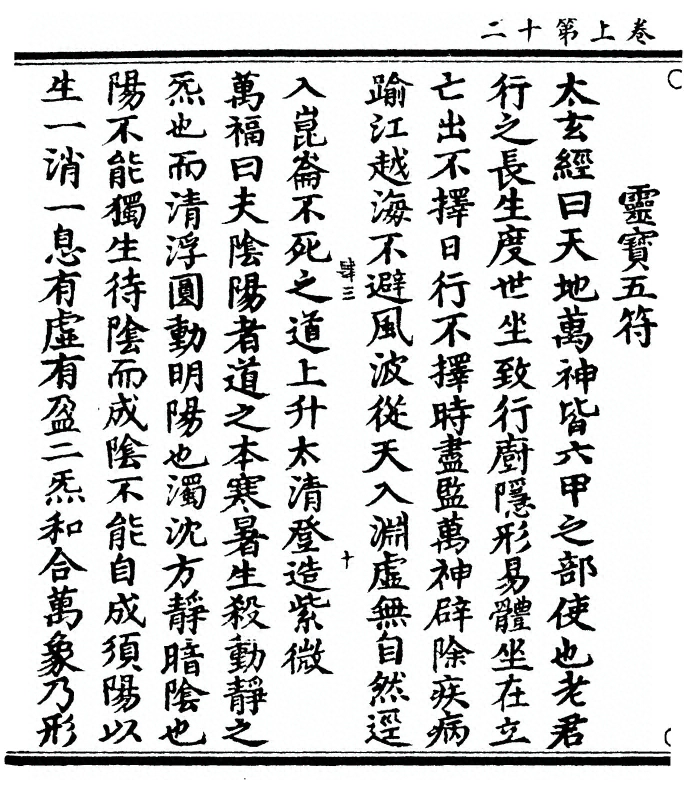 卷上第十二
靈寶五符
太玄經曰天地萬神皆六甲之部使也老君
行之長生度世坐致行廚隱形易體坐在立
亡出不擇日行不擇時盡監萬神辟除疾病
踰江越海不避風波從天入淵虛無自然逕
肆三
十
入崑崙不死之道上升太清登造紫微
萬福曰夫陰陽者道之本寒暑生殺動靜之
炁也而清浮圓動明陽也濁沈方靜暗陰也
陽不能獨生待陰而成陰不能自成須陽以
生一消一息有虛有盈二炁和合萬象乃形